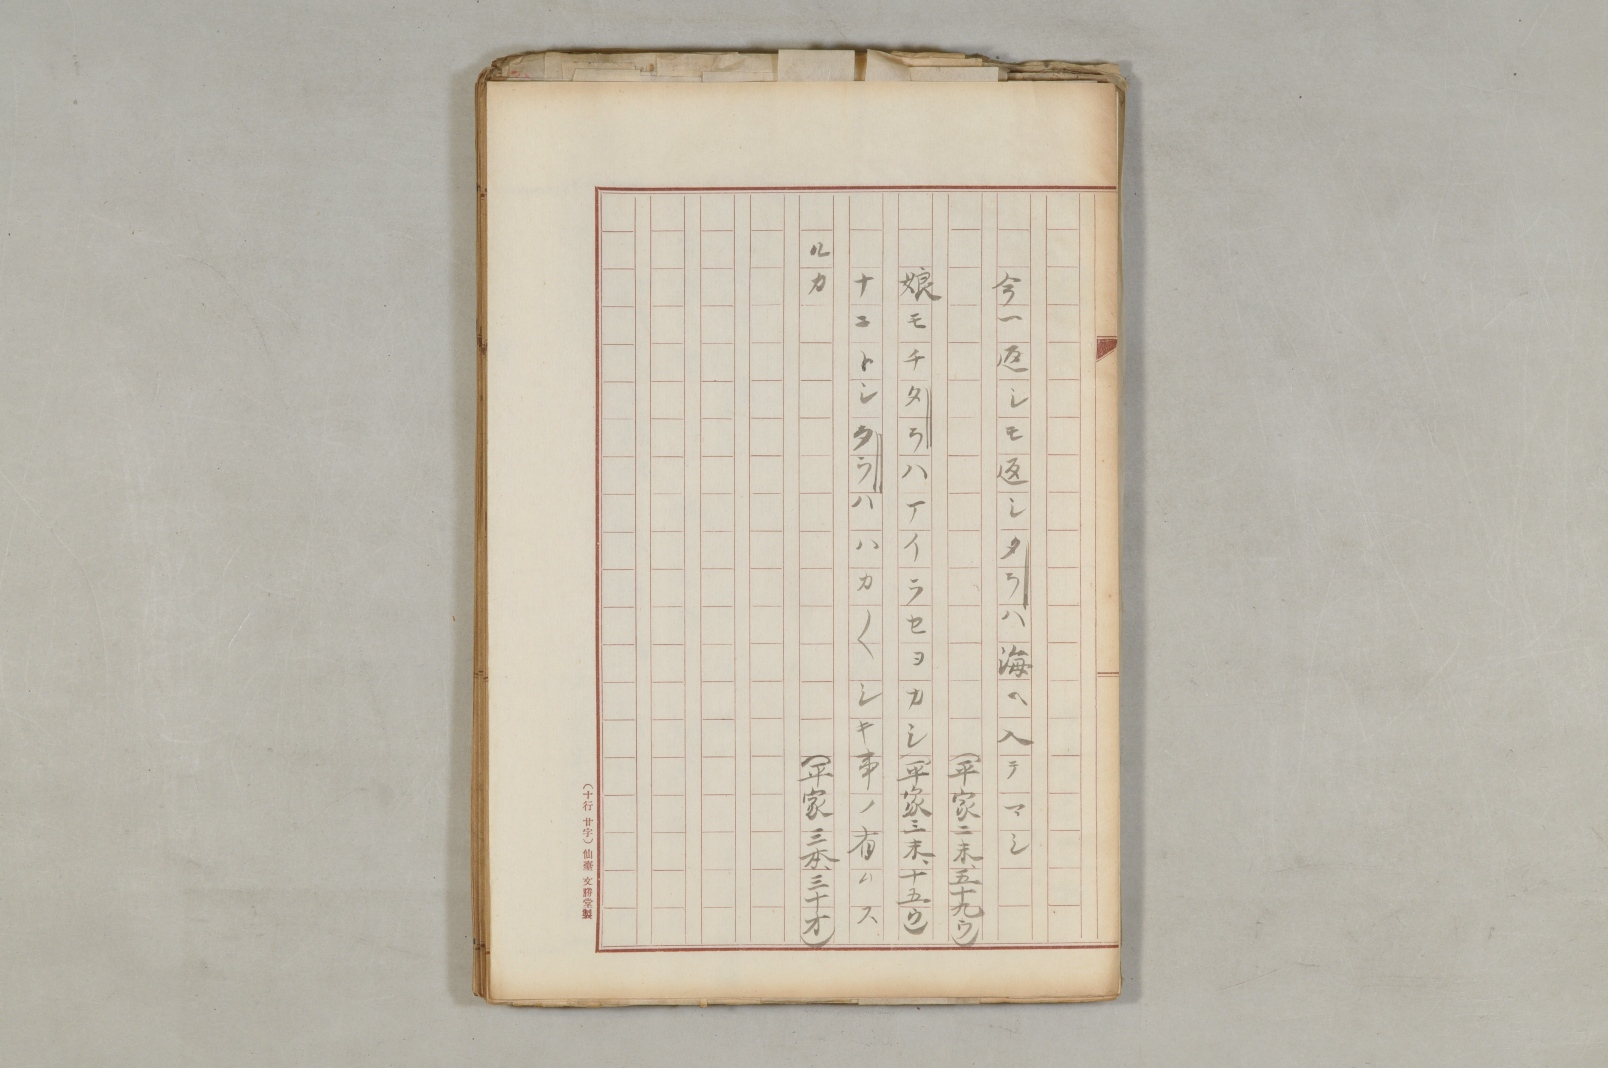 今一返シモ返シタラハ海ヘ入テマシ
(平家二末、五十九ウ)
娘モチタラハアイラセヨカシ(平家三末、十五ウ)
ナニトシタラハハカ〱シキ事ノ有ハス
ルカ(平家三本、三十オ)
(十行廿字)仙臺文勝堂製